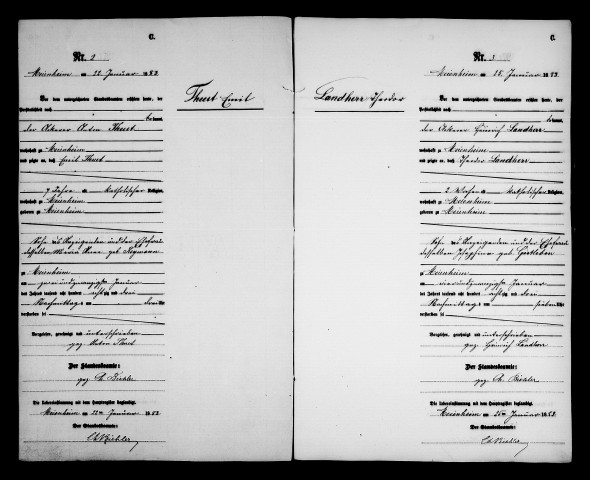 C.
Nr. 2
Meienheim am 22. Januar 1883
Vor dem unterzeichneten Standesbeamten erschien heute, der
Persönlichkeit nach
kannt,
der Ackerer Anton Thuet
wohnhaft zu Meienheim
und zeigte an, daß Emil Thuet
7 Jahre alt katholischer Religion,
wohnhaft zu Meienheim
geboren zu Meienheim
Sohn des Anzeigenden und der Ehefrau
desselben Maria Anna geb.
zu Meienheim
am zweiundzwanzigsten Januar
des Jahres tausend acht hundert achtzig und drei
Nachmittags um drei Uhr
verstorben sei
Vorgelesen, genehmigt und unterschrieben
gez. Anton Thuet
Der Standesbeamte:
gez. Biehler
Die Uebereinstimmung mit dem Hauptregister beglaubigt
Meienheim am 22ten Januar 1883
Der Standesbeamte:
Biehler
Thuet Emil
C.
Nr. 3
Meienheim am 25. Januar 1883
Vor dem unterzeichneten Standesbeamten erschien heute, der
Persönlichkeit nach
kannt,
der Ackerer Heinrich Landherr
wohnhaft zu Meienheim
und zeigte an, daß Theodor Landherr
2 Wochen alt katholischer Religion,
wohnhaft zu Meienheim
geboren zu Meienheim
Sohn des Anzeigenden und der Ehefrau
desselben Josephina geb.
zu Meienheim
am vierundzwanzigsten Januar
des Jahres tausend acht hundert achtzig und drei
Nachmittags um sieben Uhr
verstorben sei
Vorgelesen, genehmigt und unterschrieben
gez. Heinrich Landherr
Der Standesbeamte:
gez. Biehler
Die Uebereinstimmung mit dem Hauptregister beglaubigt
Meienheim am 25ten Januar 1883
Der Standesbeamte:
Biehler
Landherr Theodor